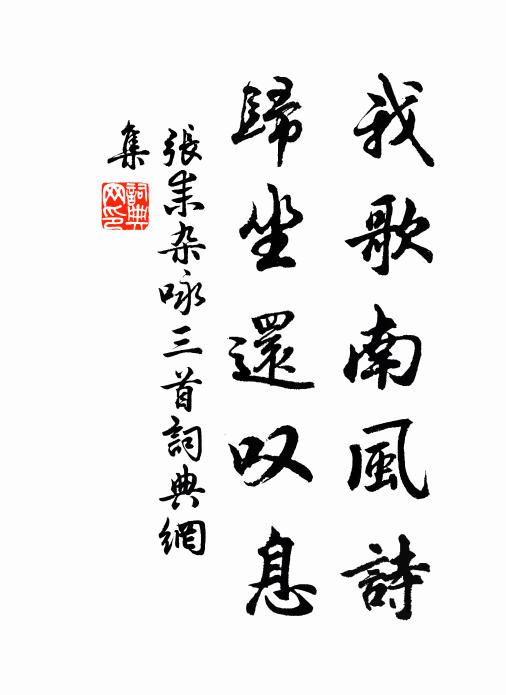 我歌南風詩
歸坐還叹息
張耒杂咏三首詞典網
集
詞典网印